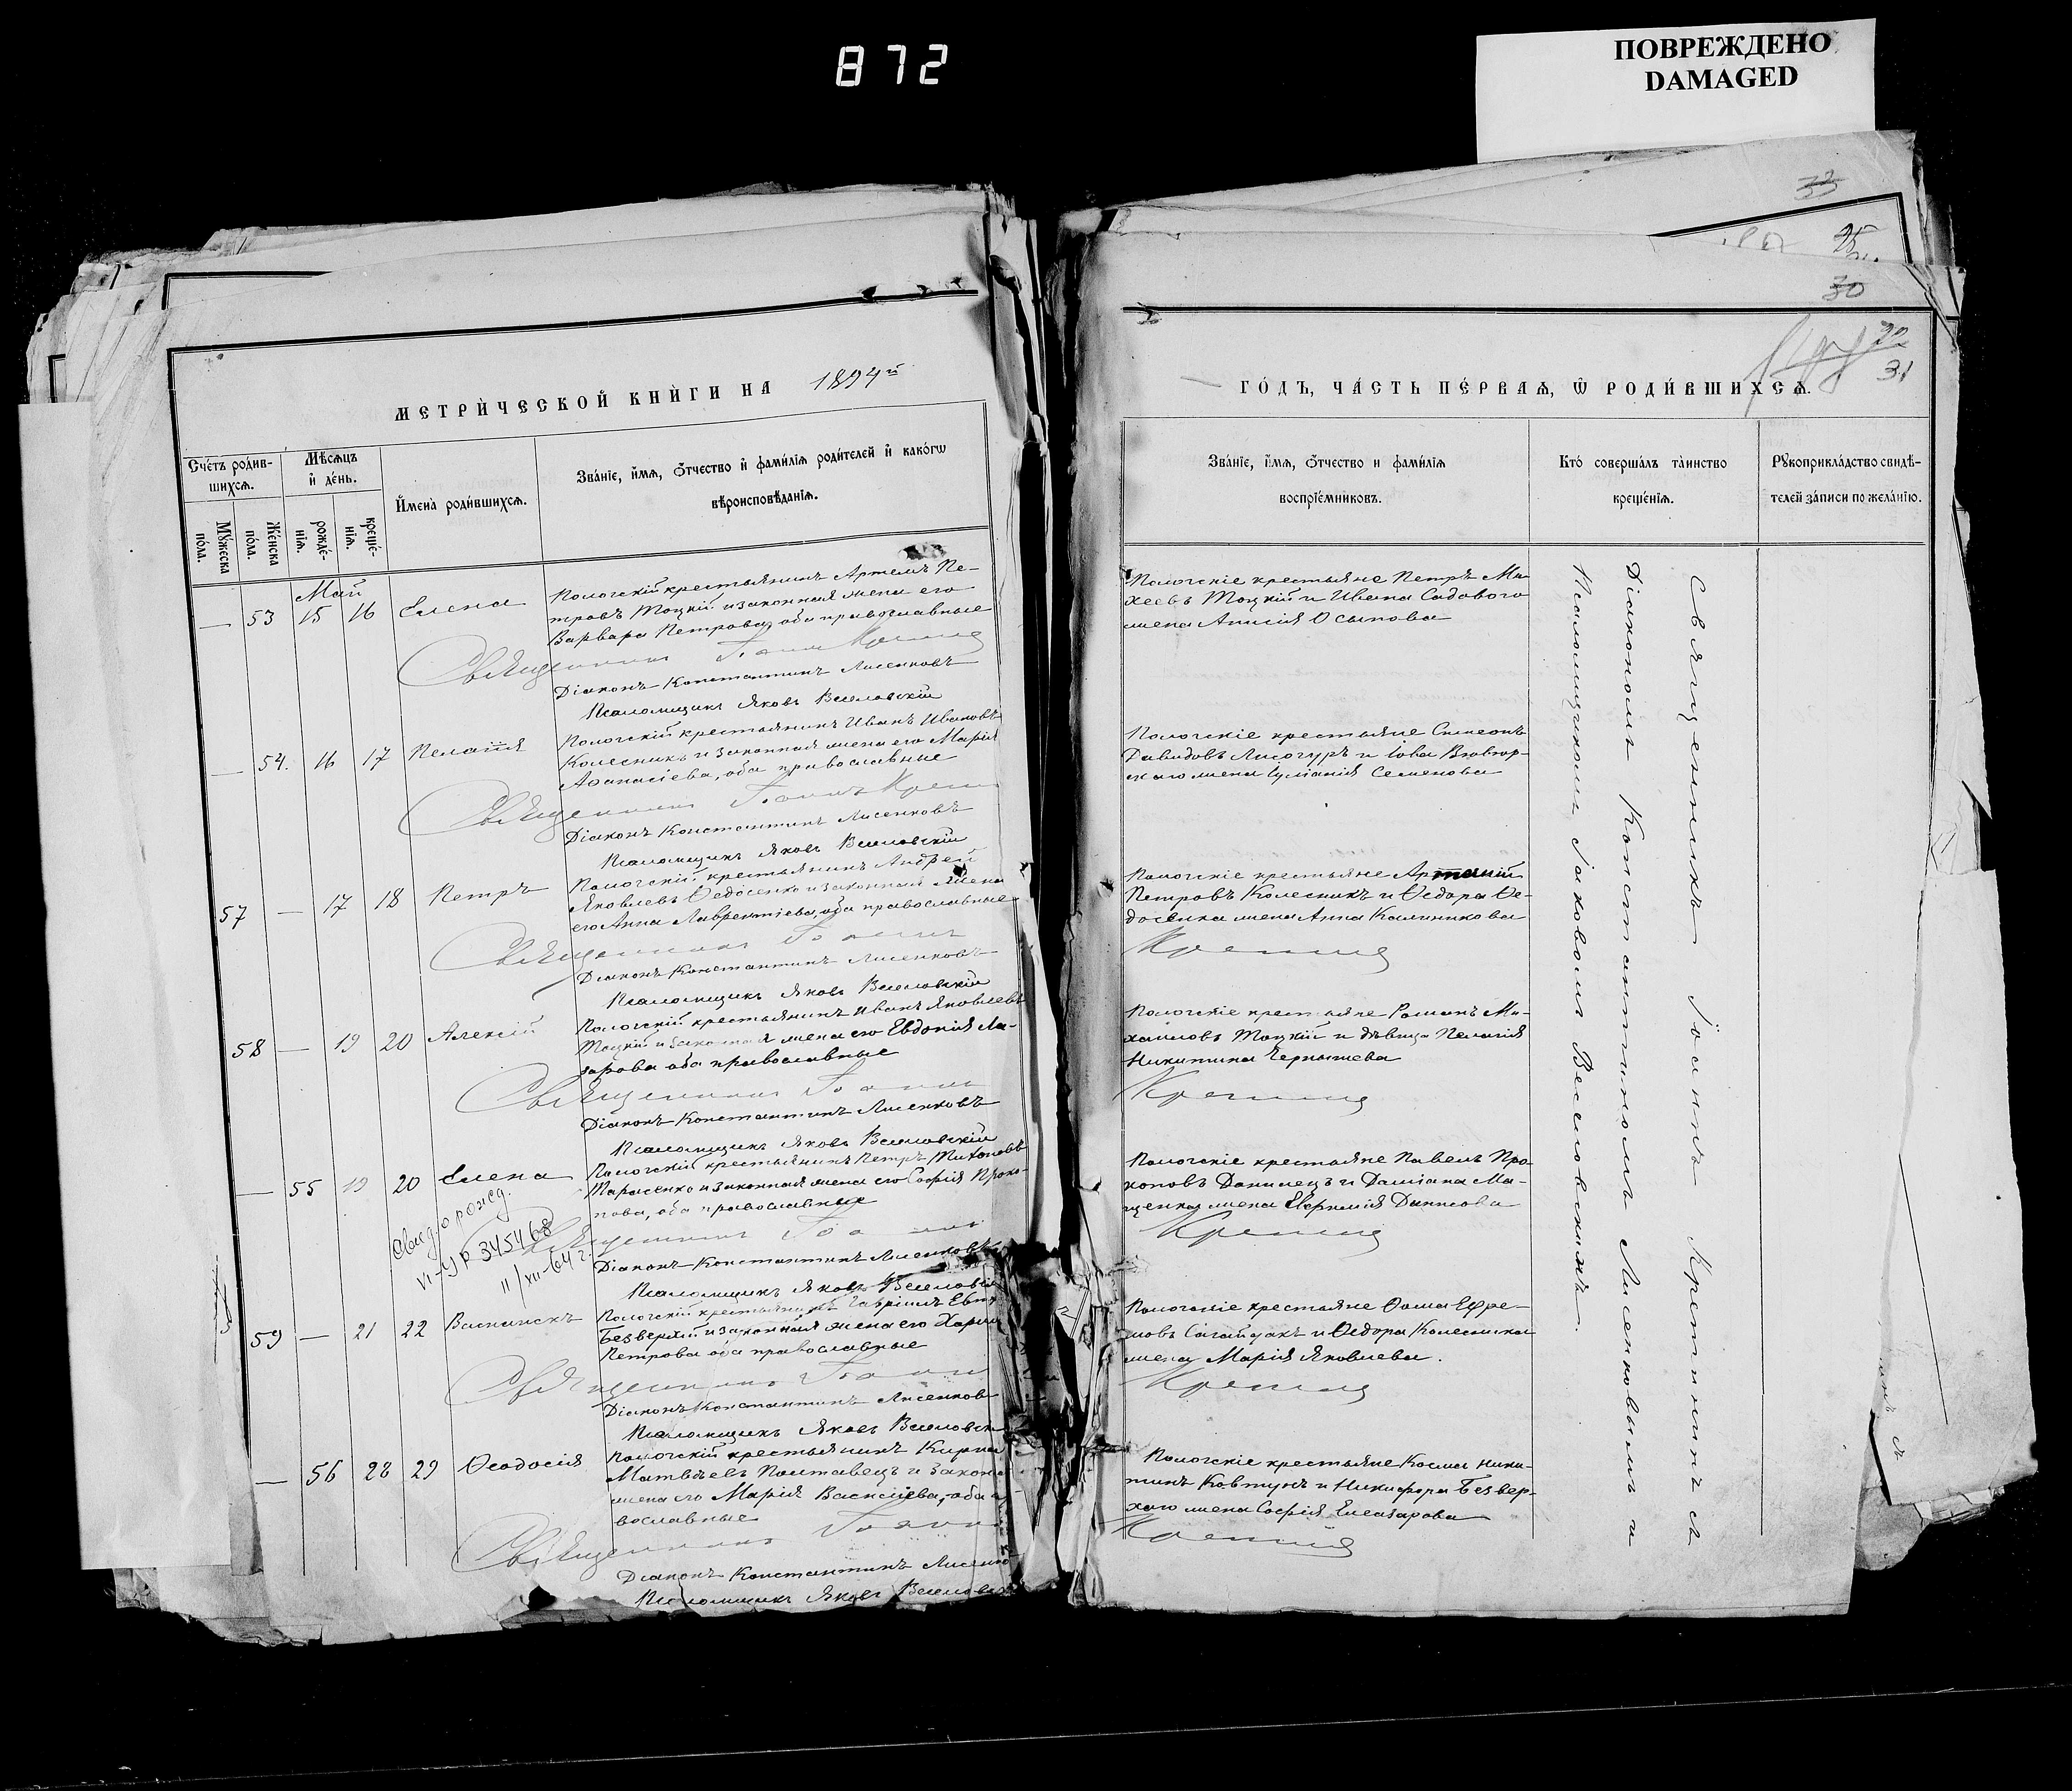 872
ПОВРЕЖДЕНО
DAMAGED
33
30
31
МЕТРИ́ЧЕСКОЙ КНИ́ГИ НА 1894й
ГО́ДЪ, ЧА́СТЬ ПЕ́РВАѦ, Ѡ҆ РОДИ́ВШИХСѦ.
Сче́тъ роди́в-
шихсѧ.
Мѣ́сѧцъ
и҆ де́нь.
Мꙋ́жеска
по́ла.
Же́нска
по́ла.
рожде́-
нїѧ.
креще́-
нїѧ.
И҆мена̀ роди́вшихсѧ.
Зва́нїе, и҆́мѧ, ѻ҆́тчество и҆ фами́лїѧ роди́телей и҆ како́гѡ
вѣроисповѣ́данїѧ.
Зва́нїе, и҆́мѧ, ѻ҆́тчество и фами́лїѧ
воспрїе́мниковъ.
Кто̀ соверша́лъ та́инство
креще́нїѧ.
Рꙋкоприкла́дство свидѣ́-
телей за́писи по жела́нїю.
Май
— 53 15 16 Елена
Пологскій крестьянинъ Артемъ Пе-
тровъ Тоцкій и законная жена его
Варвара Петрова, оба православные
Священникъ Іоаннъ
Діаконъ Константинъ Лисенковъ
Псаломщикъ Яковъ Веселовскій
Пологскіе крестьяне Петръ Ми-
хеевъ Тоцкій и Ивана Садового
жена Анисія Осипова
— 54. 16 17 Пелагія
Пологскій крестьянинъ Иванъ Ивановъ
Колесникъ и законная жена его Марія
Аѳанасіева, оба православные
Священникъ Іоаннъ
Діаконъ Константинъ Лисенковъ
Псаломщикъ Яковъ Веселовскій
Пологскіе крестьяне Симеонъ
Давидовъ Лисогуръ и Іова
жена Семенова
57 — 17 18 Петръ
Пологскій крестьянинъ Андрей
Яковлевъ Ѳедосенко и законная жена
его Анна Лаврентіева, оба православные
Священникъ Іоаннъ
Діаконъ Константинъ Лисенковъ
Псаломщикъ Яковъ Веселовскій
Пологскіе крестьяне
Петровъ Колесникъ и Ѳедора Ѳе-
досенка жена Анна Калинникова
58 — 19 20 Алексій
Пологскій крестьянинъ Иванъ Яковлевъ
Тоцкій и законная жена его Евдокія Ла-
зарова оба православные
Священникъ Іоаннъ
Діаконъ Константинъ Лисенковъ
Псаломщикъ Яковъ Веселовскій
Пологскіе крестьяне Романъ Ми-
хаиловъ Тоцкій и дѣвица Пелагія
Никитина Чернышева
— 55 19 20 Елена
Свид. о рожд.
VI-УР 345468
11/XII-64 г.
Пологскій крестьянинъ Петръ Тихоновъ
Тарасенко и законная жена его Софія Проко-
пова, оба православные
Священникъ Іоаннъ
Діаконъ Константинъ Лисенковъ
Псаломщикъ Яковъ Веселовскій
Пологскіе крестьяне Павелъ Про-
коповъ Данилецъ и Даміана Ма-
щенка жена Евфимія Данилова
59 — 21 22 Василискъ
Пологскій крестьянинъ Гавріилъ
Безверхій и законная жена его
Петрова оба православные
Священникъ Іоаннъ
Діаконъ Константинъ Лисенковъ
Псаломщикъ Яковъ Веселовскій
Пологскіе крестьяне Ѳома Ефре-
мовъ Сагайдакъ и Ѳедора Колесника
жена Марія Яковлева.
— 56 28 29 Ѳеодосія
Пологскій крестьянинъ
Матвѣевъ Полтавецъ и закон
жена его Марія Василіева, оба
вославные
Священникъ Іоаннъ
Діаконъ Константинъ Лисенко
Псаломщикъ Яковъ Веселовск
Пологскіе крестьяне Косма Ники-
тинъ Ковтунъ и Никифора Безвер-
хаго жена Софія Елеазарова
Священникъ Іоаннъ съ
Діакономъ Константиномъ Лисенковымъ и
Псаломщикомъ Іаковомъ Веселовскимъ.